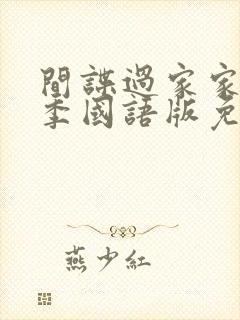 間諜過家家
季國語版免
燕少紅